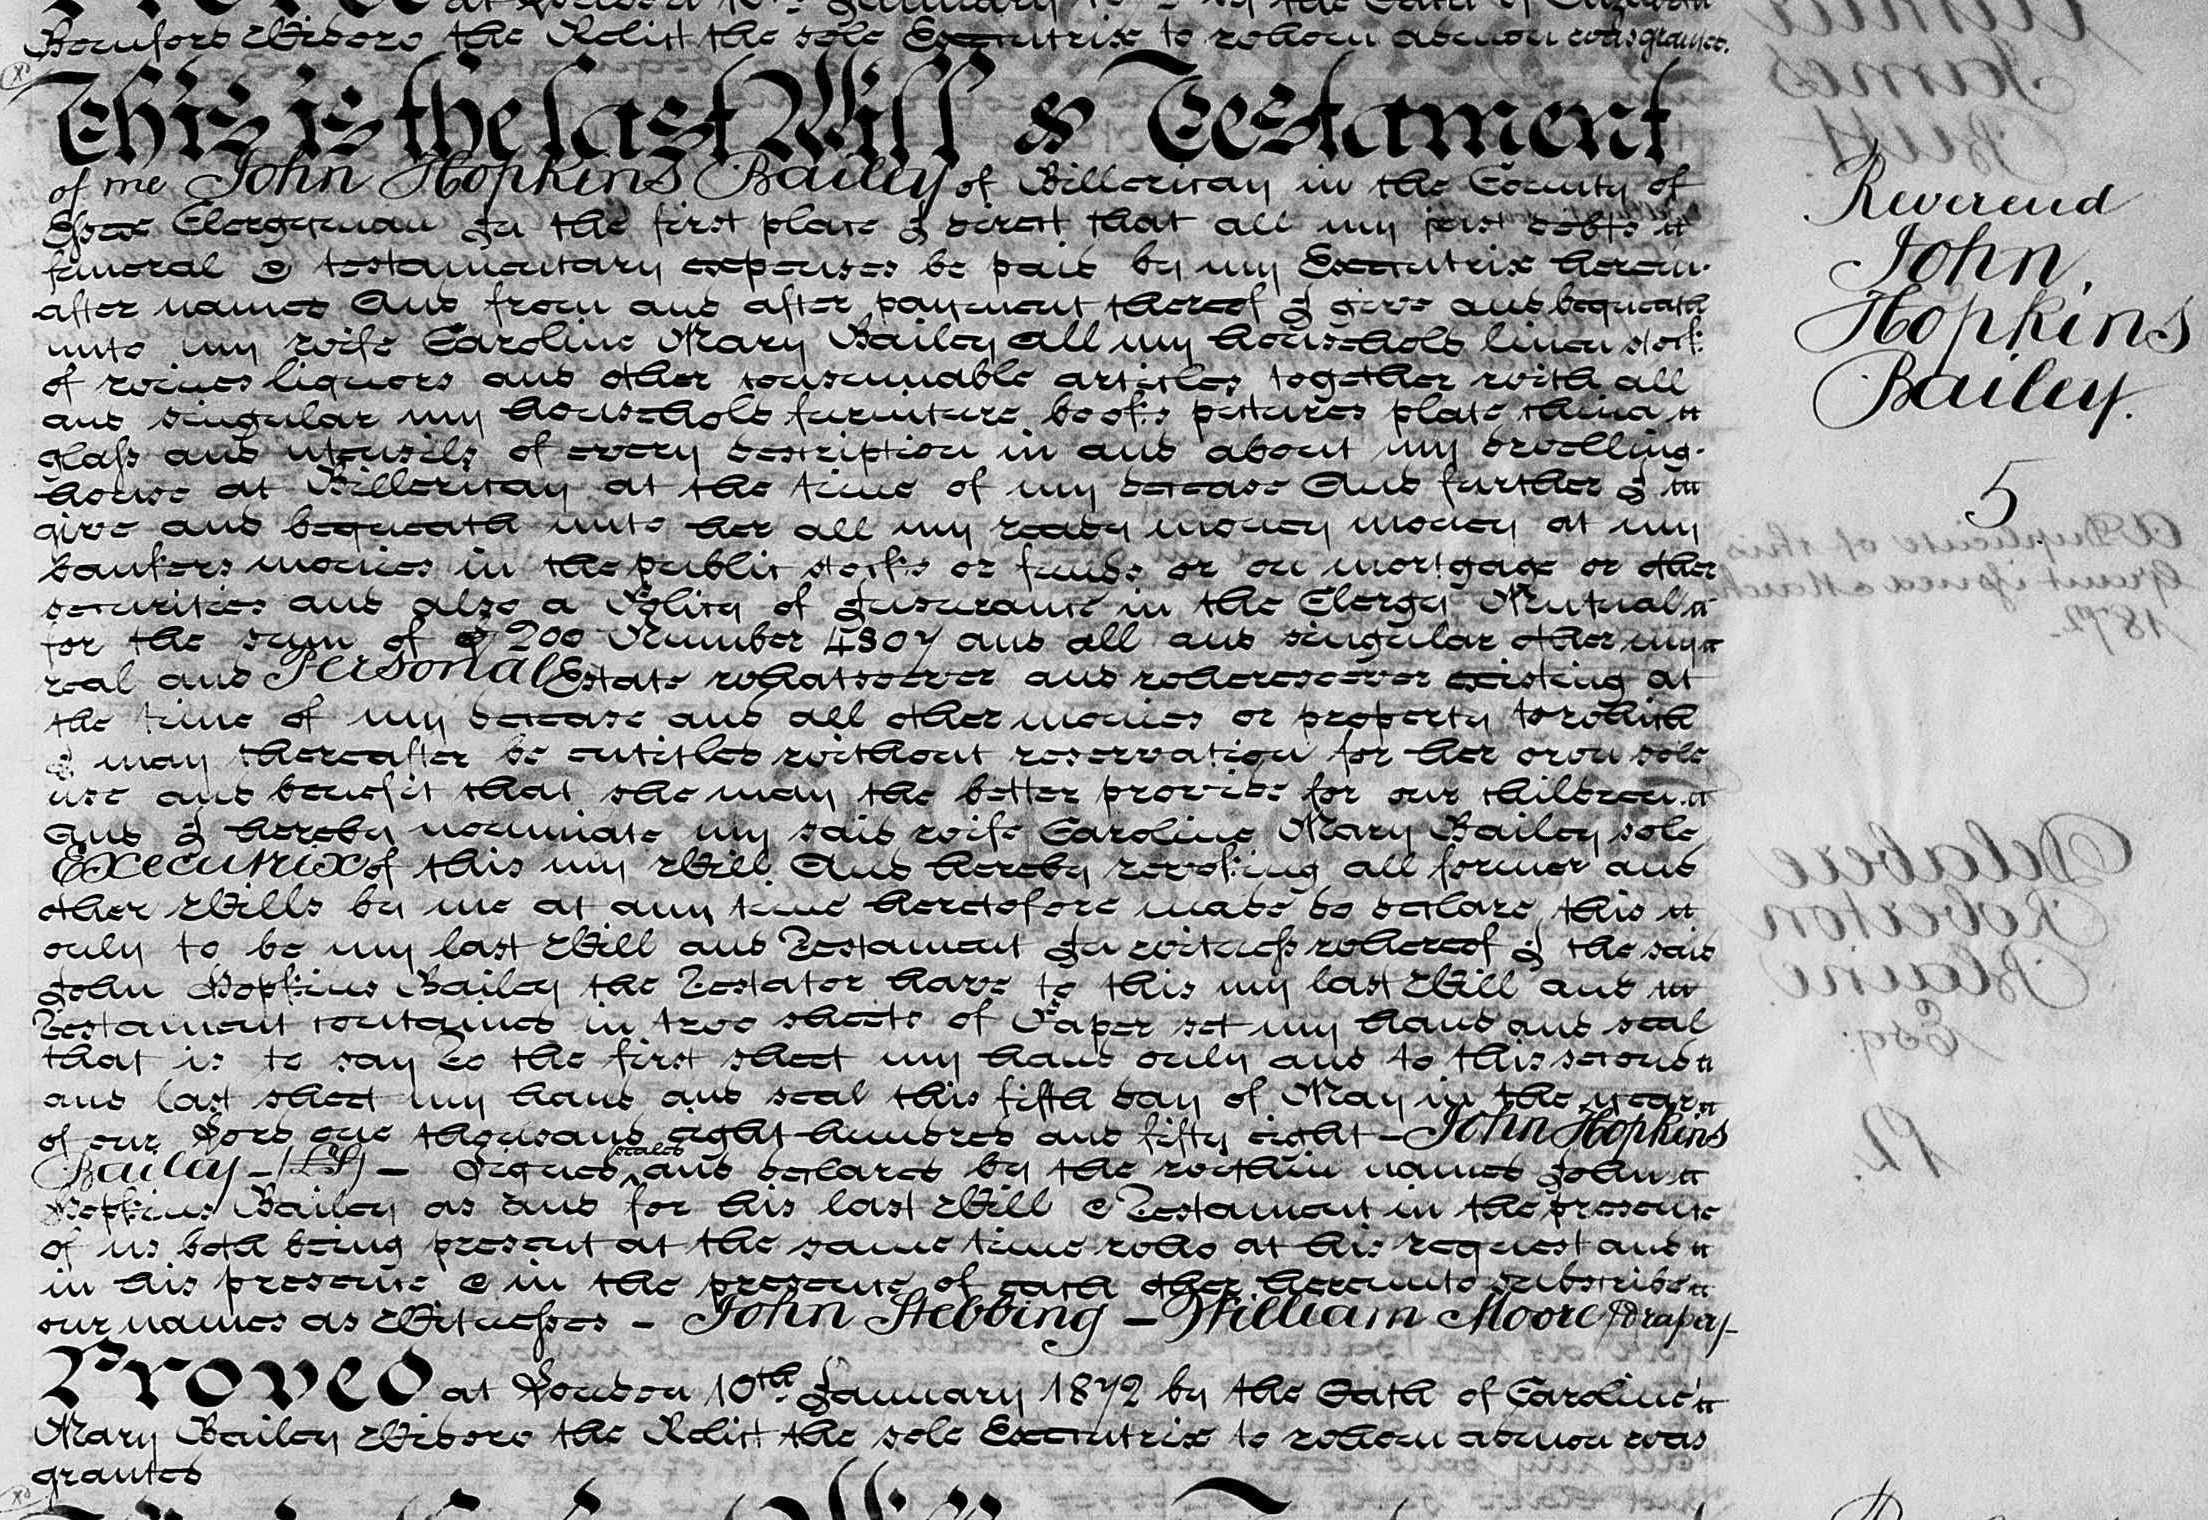 Proved at London 10th January 1872 by the Oath of Elizabeth
Beauford Widow the Relict the sole Executrix to whom admon was granted.
This is the last Will & Testament
of me John Hopkins Bailey of Billericay in the County of
Essex Clergyman In the first place I direct that all my just debts
funeral & testamentary expenses be paid by my Executrix herein
after named And from and after payment thereof I give and bequeath
unto my wife Caroline Mary Bailey All my household linen stock
of wines liquors and other consumable articles together with all
and singular my household furniture books pictures plate china
glass and utensils of every description in and about my dwelling
house at Billericay at the time of my decease And further I
give and bequeath unto her all my ready money money at my
bankers monies in the public stocks or funds or on mortgage or other
securities and also a Policy of Insurance in the Clergy Mutual
for the sum of £200 Number 4807 and all and singular other my
real and Personal Estate whatsoever and wheresoever existing at
the time of my decease and all other monies or property to which
I may thereafter be entitled without reservation for her own sole
use and benefit that she may the better provide for our children
And I hereby nominate my said wife Caroline Mary Bailey sole
Executrix of this my Will And hereby revoking all former and
other Wills by me at any time heretofore made do declare this
only to be my last Will and Testament In witness whereof I the said
John Hopkins Bailey the Testator have to this my last Will and
Testament contained in two sheets of Paper set my hand and seal
that is to say To the first sheet my hand only and to this second
and last sheet my hand and seal this fifth day of May in the year
of our Lord one thousand eight hundred and fifty eight – John Hopkins
Bailey – (LS) – Signed sealed and declared by the within named John
Hopkins Bailey as and for his last Will & Testament in the presence
of us both being present at the same time who at his request and
in his presence & in the presence of each other hereunto subscribe
our names as Witnesses – John Stebbing – William Moore Draper –
Proved at London 10th January 1872 by the Oath of Caroline
Mary Bailey Widow the Relict the sole Executrix to whom admon was
granted
Reverend
John
Hopkins
Bailey.
5